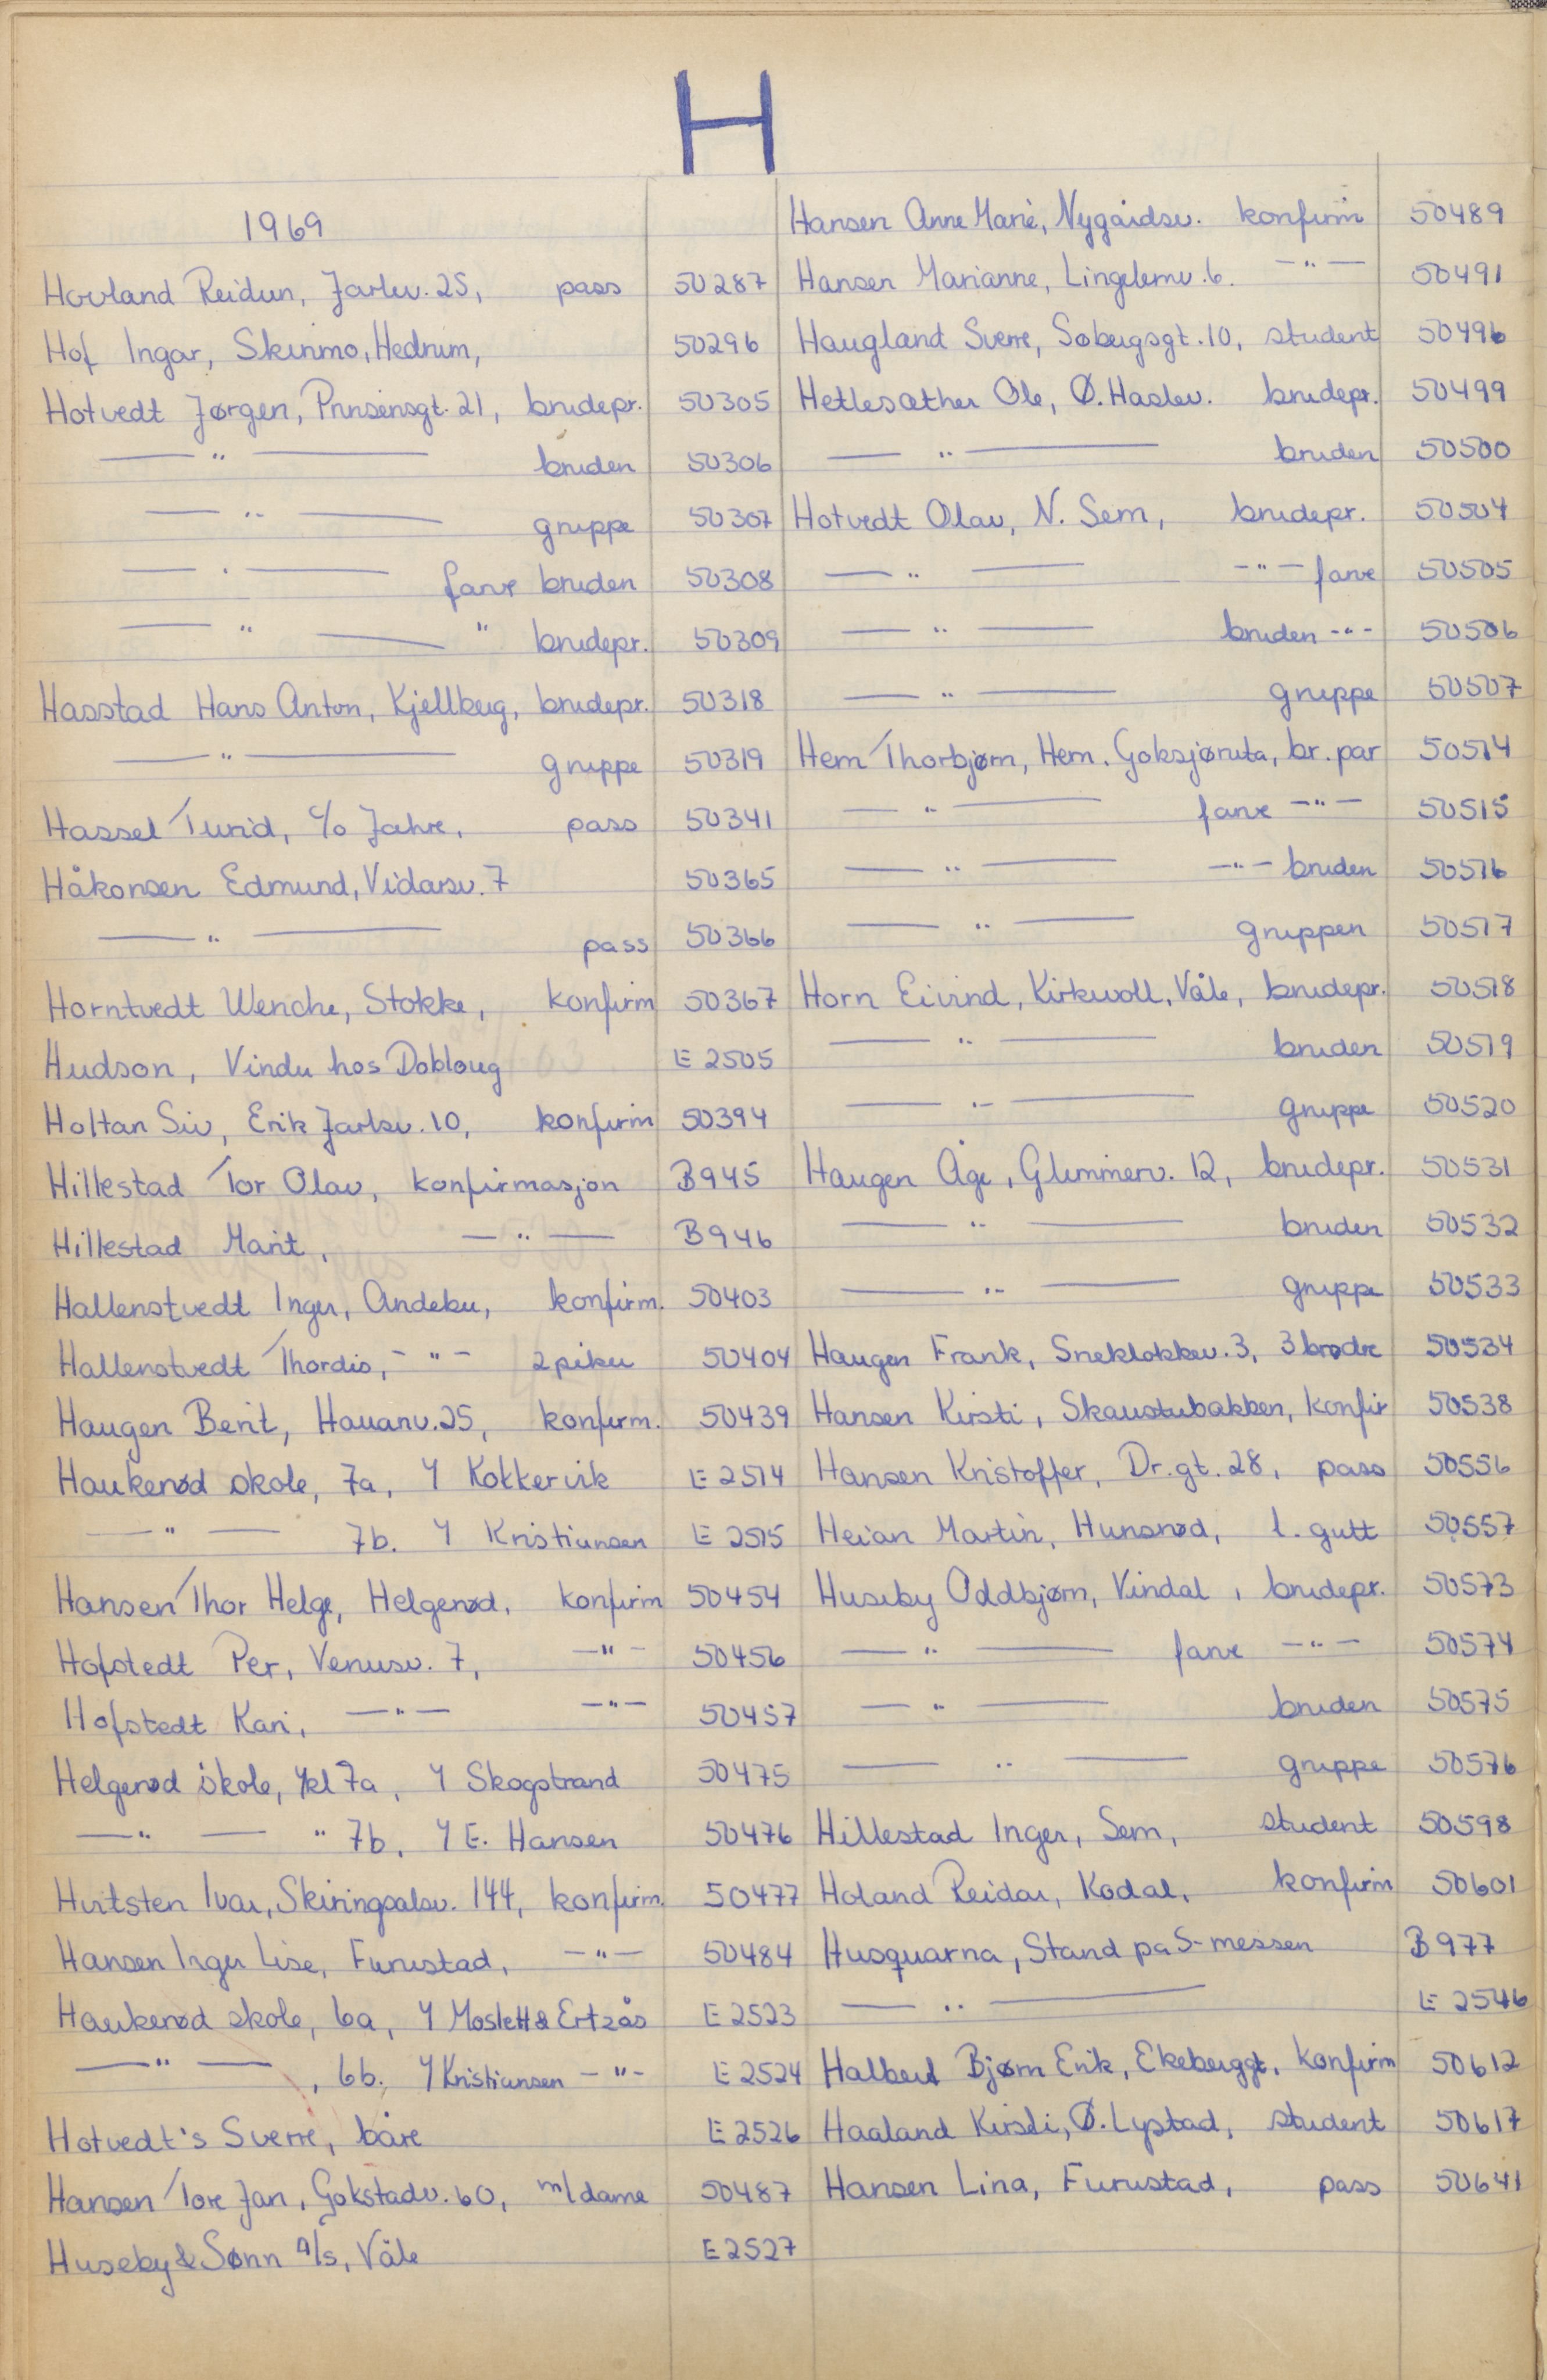 H
1969
Hovland Reidun, Jarlsv. 25, pass 50287
Hof Ingar, Skinmo, Hedrum, 50296
Hotvedt Jørgen, Prinsensgt. 21, brudepr. 50305
— " — bruden 50306
— " — gruppe 50307
— " — farve bruden 50308
— " — " brudepr. 50309
Hasstad Hans Anton, Kjellberg, brudepr. 50318
— " — gruppe 50319
Hassel Turid, c/o Jahre, pass 50341
Håkonsen Edmund, Vidarsv. 7 50365
— " — pass 50366
Horntvedt Wenche, Stokke, konfirm 50367
Hudson, Vindu hos Dobloug E 2505
Holtan Siv, Erik Jarlsv. 10, konfirm 50394
Hillestad Tor Olav, konfirmasjon B945
Hillestad Marit, — " — B946
Hallenstvedt Inger, Andebu, konfirm. 50403
Hallenstvedt Thordis, - " - 2 piker 50404
Haugen Berit, Hauanv. 25, konfirm. 50439
Haukerød skole, 7a, Y Kokkervik E 2514
— " — 7b. Y Kristiansen E 2515
Hansen Thor Helge, Helgerød, konfirm 50454
Hofstedt Per, Venusv. 7, — " - 50456
Hofstedt Kari, — " — — " — 50457
Helgerød skole, Ykl 7a, Y Skogstrand 50475
— " — " 7b, Y E. Hansen 50476
Hirtsten Ivar, Skiringsalsv. 144, konfirm. 50477
Hansen Inger Lise, Furustad, — " — 50484
Haukerød skole, 6a, Y Moslett & Ertzås E 2523
— " — , 6b. Y Kristiansen - " - E 2524
Hotvedt's Sverre, båre E 2526
Hansen Tore Jan, Gokstadv. 60, m/dame 50487
Huseby & Sønn A/s, Våle E 2527
Hansen Anne Marie, Nygårdsv. konfirm 50489
Hansen Marianne, Lingelemv. 6. — " — 50491
Haugland Sverre, Søbergsgt. 10, student 50496
Hetlesæther Ole, Ø. Haslev. brudepr. 50499
— " — bruden 50500
Hotvedt Olav, N. Sem, brudepr. 50504
— " — - " - farve 50505
— " — bruden - " - 50506
— " — gruppe 50507
Hem Thorbjørn, Hem. Goksjøruta, br. par 50514
— " — farve — " — 50515
— " — — " — bruden 50516
— " — gruppen 50517
Horn Eivind, Kirkevoll, Våle, brudepr. 50518
— " — bruden 50519
— " — gruppe 50520
Haugen Åge, Glimmerv. 12, brudepr. 50531
— " — bruden 50532
— " — gruppe 50533
Haugen Frank, Sneklokkev. 3, 3 brødre 50534
Hansen Kirsti, Skaustubakken, konfir 50538
Hansen Kristoffer, Dr. gt. 28, pass 50556
Heian Martin, Hunsrød, l. gutt 50557
Huseby Oddbjørn, Vindal, brudepr. 50573
— " — farve — " — 50574
— " — bruden 50575
— " — gruppe 50576
Hillestad Inger, Sem, student 50598
Holand Reidar, Kodal, konfirm 50601
Husquarna, Stand på S-messen B977
— " — E 2546
Halberd Bjørn Erik, Ekebergqt. konfirm 50612
Haaland Kirsti, Ø. Lystad, student 50617
Hansen Lina, Furustad, pass 50641